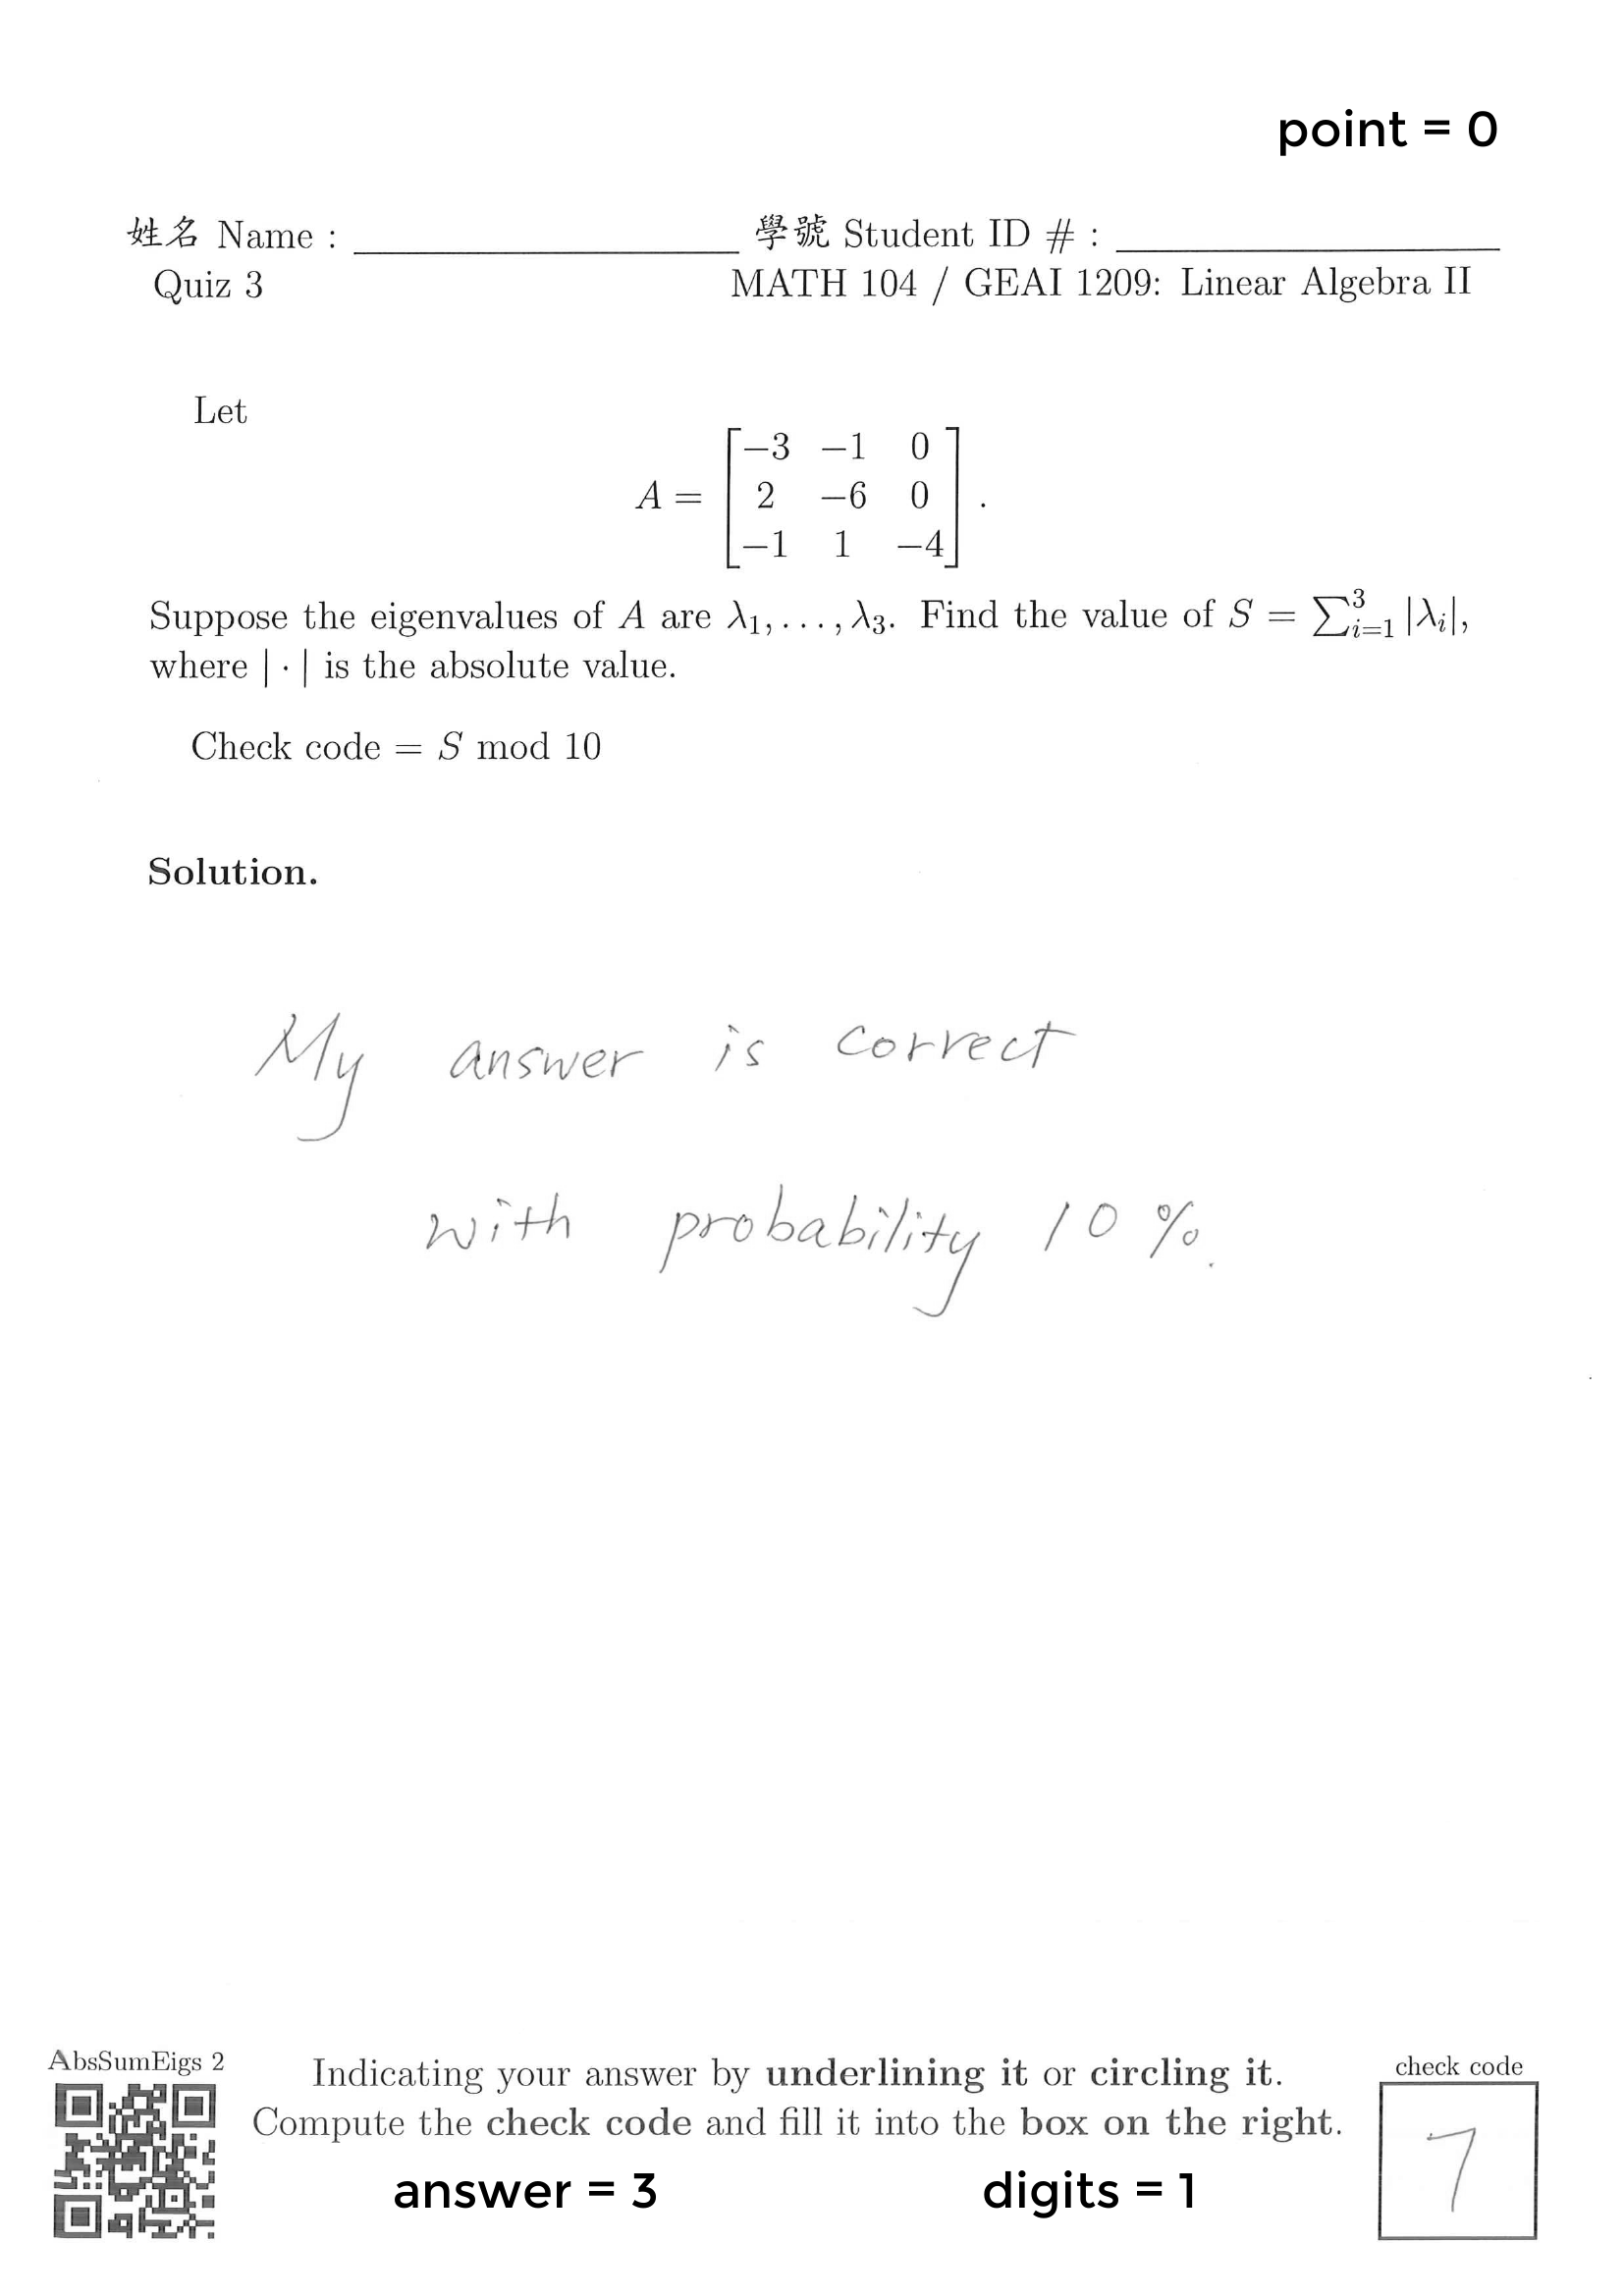 point = 0
姓名 Name : 學號 Student ID # :
Quiz 3 MATH 104 / GEAI 1209: Linear Algebra II
Let
A = [−3 −1 0
2 −6 0
−1 1 −4] .
Suppose the eigenvalues of A are λ₁, . . . , λ₃. Find the value of S = ∑³ᵢ₌₁ |λᵢ|,
where | · | is the absolute value.
Check code = S mod 10
Solution.
My answer is correct
with probability 10 %.
AbsSumEigs 2
Indicating your answer by underlining it or circling it.
Compute the check code and fill it into the box on the right.
answer = 3 digits = 1
check code
7